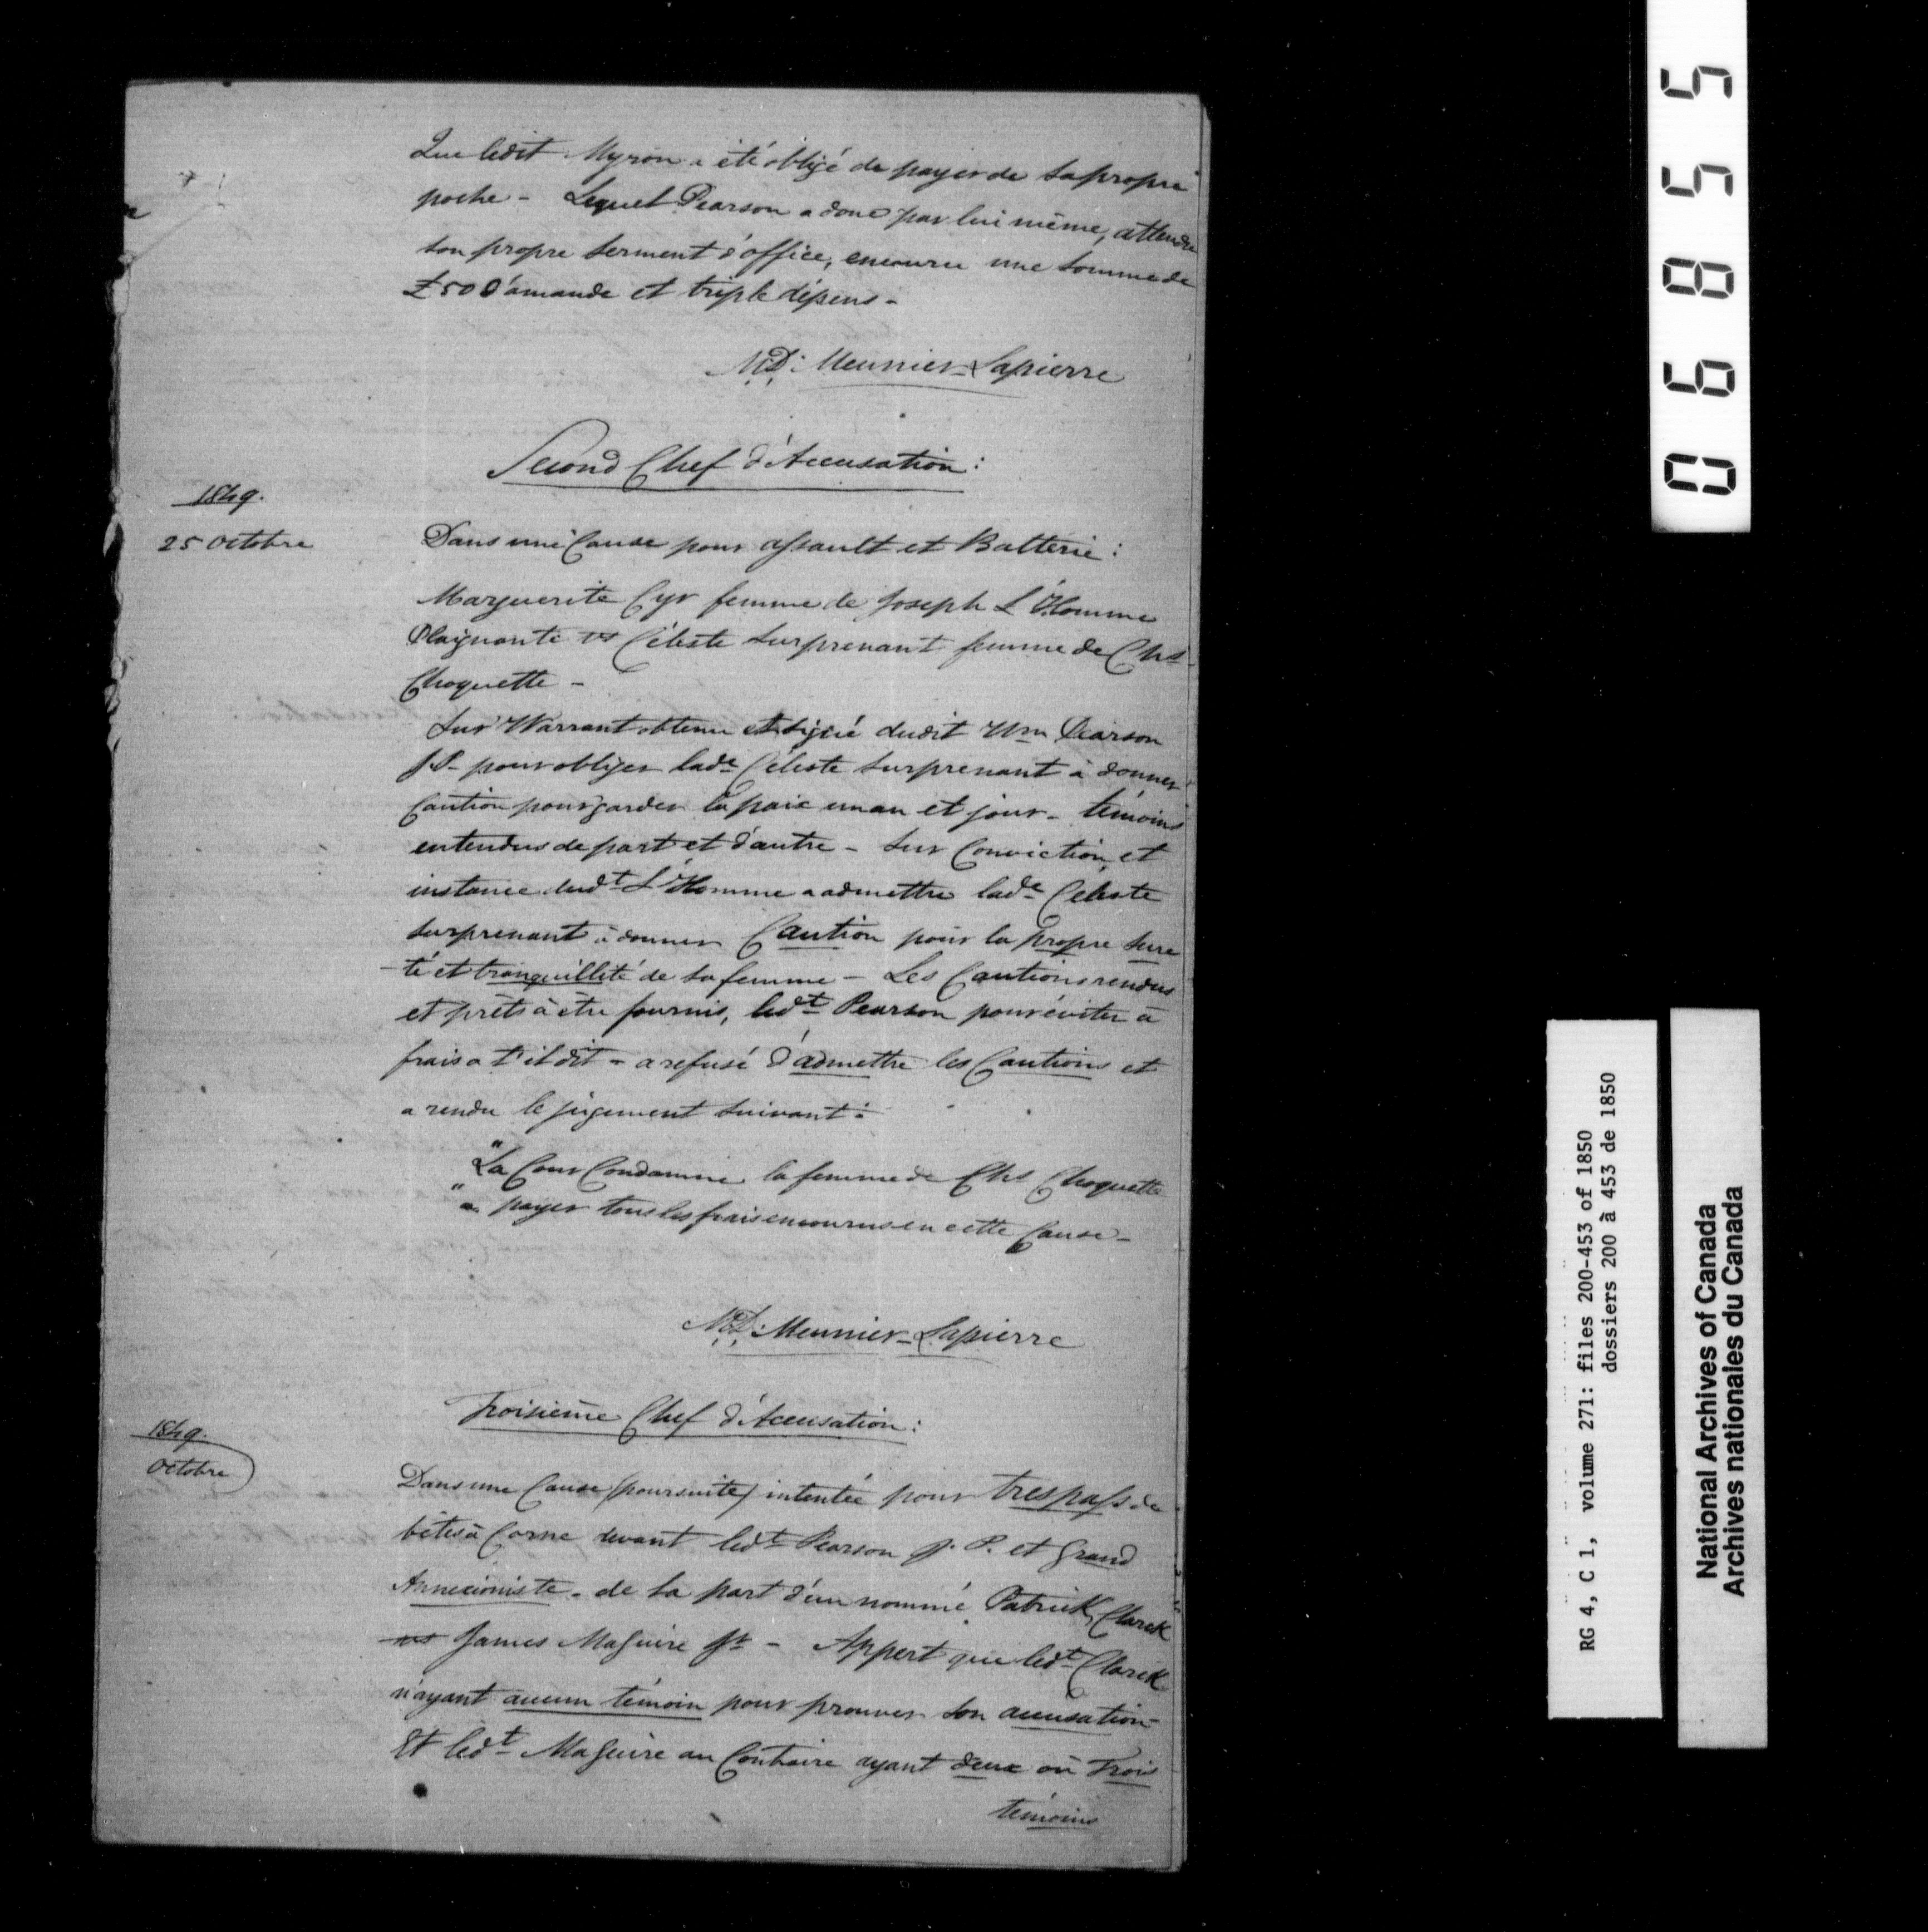 Que ledit Myron a été obligé de payer de sa propre
poche - Lequel Pearson a donc par lui même, attendu
son propre serment d'office, encouru une somme de
£50 d'amande et triple dépens -
M.D: Meunier-Lapierre
Second Chef d'Accusation:
1849.
25 Octobre
Dans une Cause pour assault et Batterie:
Marguerite Cyr femme de Joseph L'Homme
Plaignante vs Céleste Surprenant femme de Chs
Choquette -
Sur Warrant obtenu et signé dudit Wm Pearson
J.P. pour obliger lade Céleste Surprenant à donner
Caution pour garder la paix un an et jour - témoins
entendus de part et d'autre - Sur Conviction, et
instance dudt L'Homme a admettre lade Céleste
Surprenant à donner Caution pour la propre sure
-té et tranquillité de sa femme - Les Cautions rendus
et prêts à être fournis, ledt Pearson pour éviter à
frais a t'il dit - a refusé d'admettre les Cautions et
a rendu le jugement suivant:
"La Cour Condamne la femme de Chs Choquette
"a payer tous les frais encourus en cette Cause -
M.D: Meunier-Lapierre
Troisième Chef d'Accusation:
1849.
Octobre
Dans une Cause (poursuite) intentée pour trespass de
bêtes à Corne devant ledt Pearson J.P. et Grand
Annexioniste - de la part d'un nommé Patrick Clarck
vs James MaGuire Jr - Appert que ledt Clarck
n'ayant aucun témoin pour prouver son accusation -
Et ledt MaGuire au Contraire ayant deux où Trois
témoins
06855
RG 4, C 1, volume 271: files 200-453 of 1850
dossiers 200 à 453 de 1850
National Archives of Canada
Archives nationales du Canada